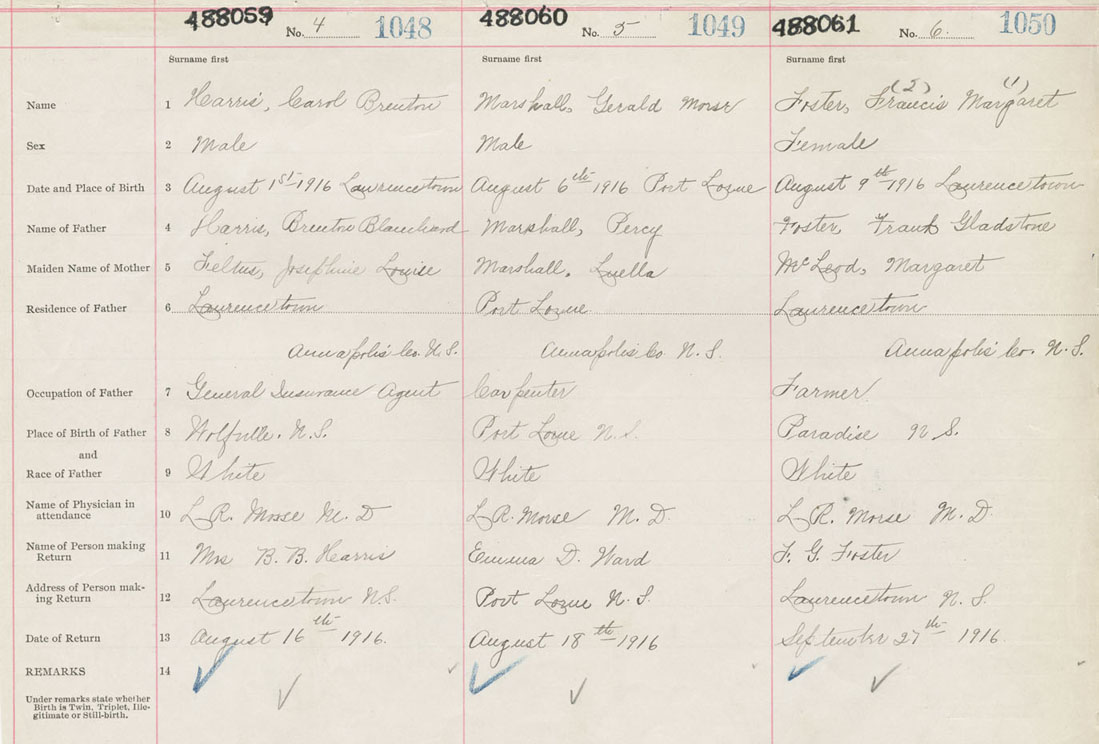 488059 No. 4 1048 488060 No. 5 1049 488061 No. 6. 1050
Surname first Surname first Surname first
(2) (1)
Name 1 Harris, Carol Brenton Marshall, Gerald Morse Foster, Francis Margaret
Sex 2 Male Male Female
Date and Place of Birth 3 August 1st 1916 Lawrencetown August 6th 1916 Port Lorne August 9th 1916 Lawrencetown
Name of Father 4 Harris, Brenton Blanchard Marshall, Percy Foster, Frank Gladstone
Maiden Name of Mother 5 Feltus, Josephine Louise Marshall, Luella McLeod, Margaret
Residence of Father 6 Lawrencetown Port Lorne Lawrencetown
Annapolis Co. N.S. Annapolis Co. N.S. Annapolis Co. N.S.
Occupation of Father 7 General Insurance Agent Carpenter Farmer
Place of Birth of Father 8 Wolfville. N.S. Port Lorne N.S. Paradise N.S.
and
Race of Father 9 White White White
Name of Physician in
attendance 10 L R. Morse M. D L R. Morse M. D. L R. Morse M. D.
Name of Person making
Return 11 Mrs B. B. Harris Emma D. Ward F. G. Foster
Address of Person mak-
ing Return 12 Lawrencetown N.S. Port Lorne N.S. Lawrencetown N.S.
Date of Return 13 August 16th 1916. August 18th 1916 September 27th 1916.
REMARKS 14
Under remarks state whether
Birth is Twin, Triplet, Ille-
gitimate or Still-birth.